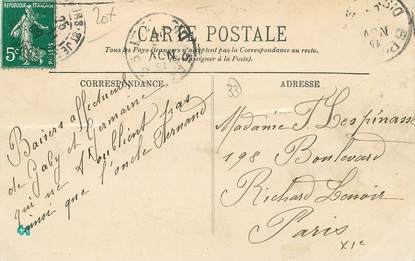 20f
5c
CARTE POSTALE
Tous les Pays étrangers n'acceptent pas la Correspondance au recto.
(Se renseigner à la Poste).
CORRESPONDANCE
ADRESSE
33
Baisers affectueux
de Gaby et Germaine
qui ne t'oublient pas
ainsi que l'oncle Fernand
Madame J. Lespinasse
198 Boulevard
Richard Lenoir
Paris
XIe